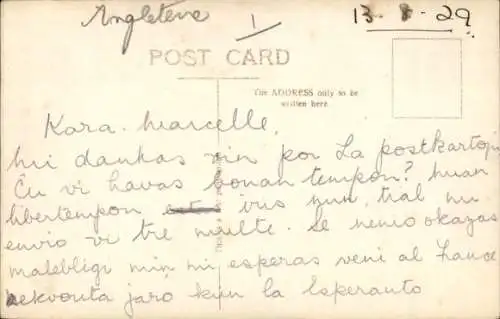 Angleterre
1
13-8-29
POST CARD
The ADDRESS only to be
written here
Kara Marcelle,
mi dankas vin por La postkarton
Ĉu vi havas bonan tempon?
libertempon nun, tial mi
envio vi tre multe. Se nenio okazas
malebligi min mi esperas veni al
jaro kun la Esperanto